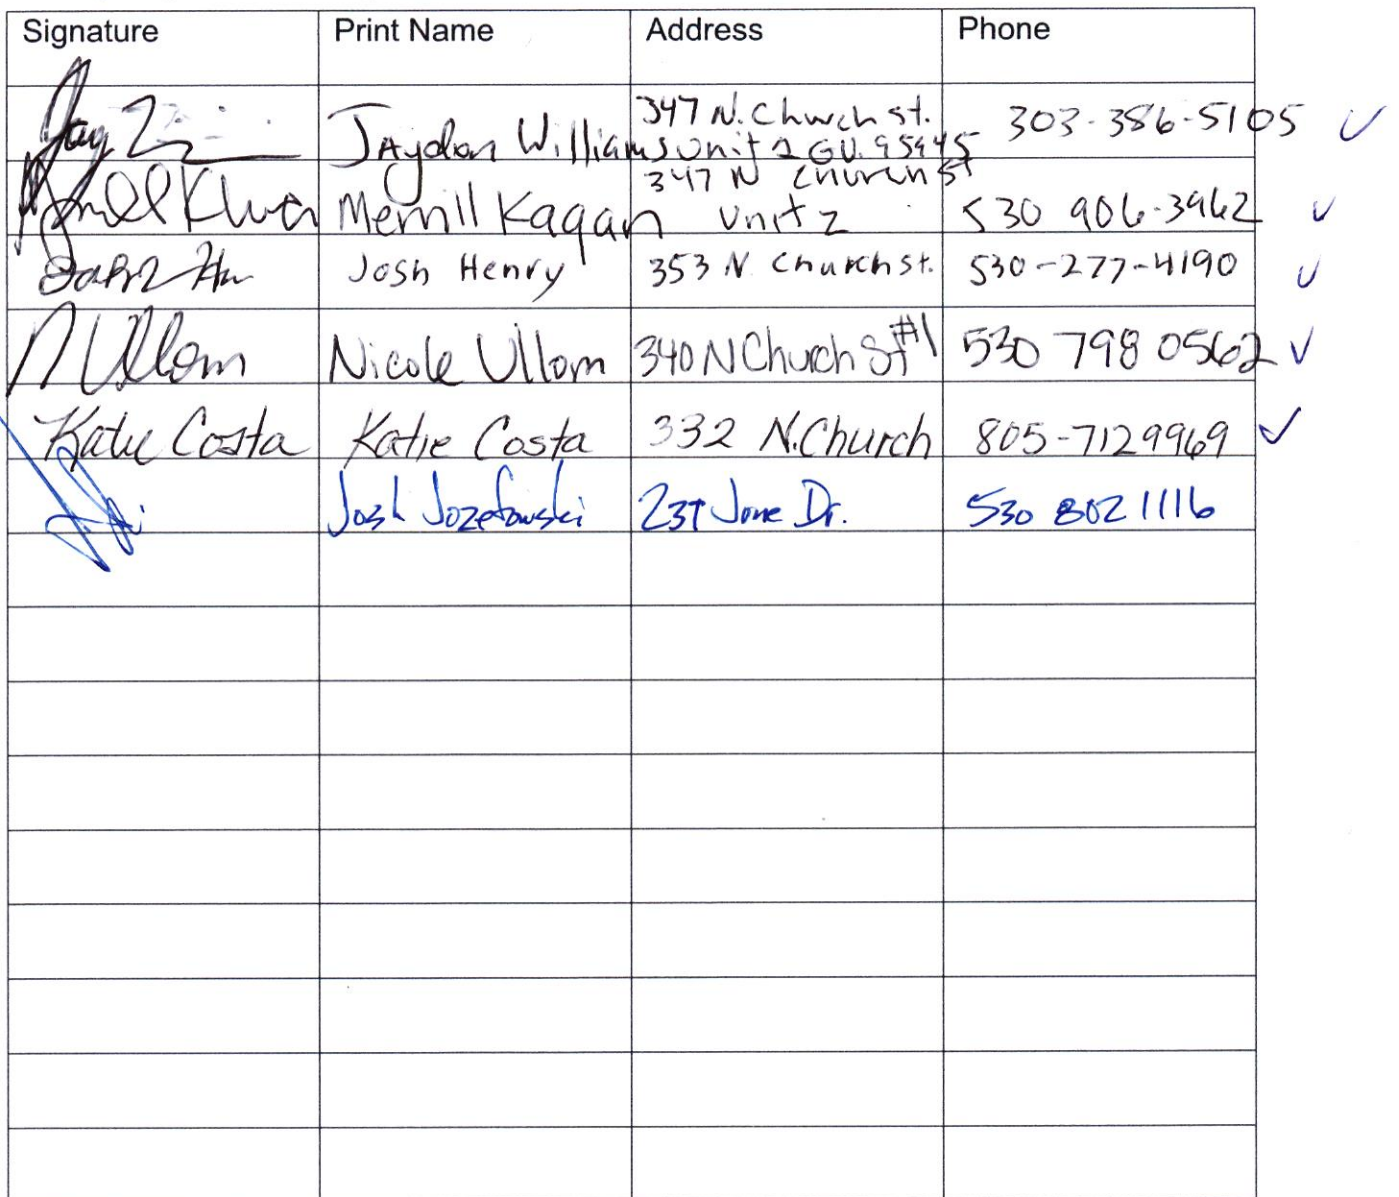 Signature Print Name Address Phone
Jaydon Williams 347 N. Church st. 303-386-5105 ✓
Unit 2 GV. 95945
347 N Church st
Merrill Kagan Unit 2 530 906-3962 ✓
Josh Henry 353 N Church st. 530-277-4190 ✓
N Ullom Nicole Ullom 340 N Church St #1 530 798 0562 ✓
Katie Costa Katie Costa 332 N. Church 805-7129969 ✓
Josh Jozefowski Dr. 530 802 1116